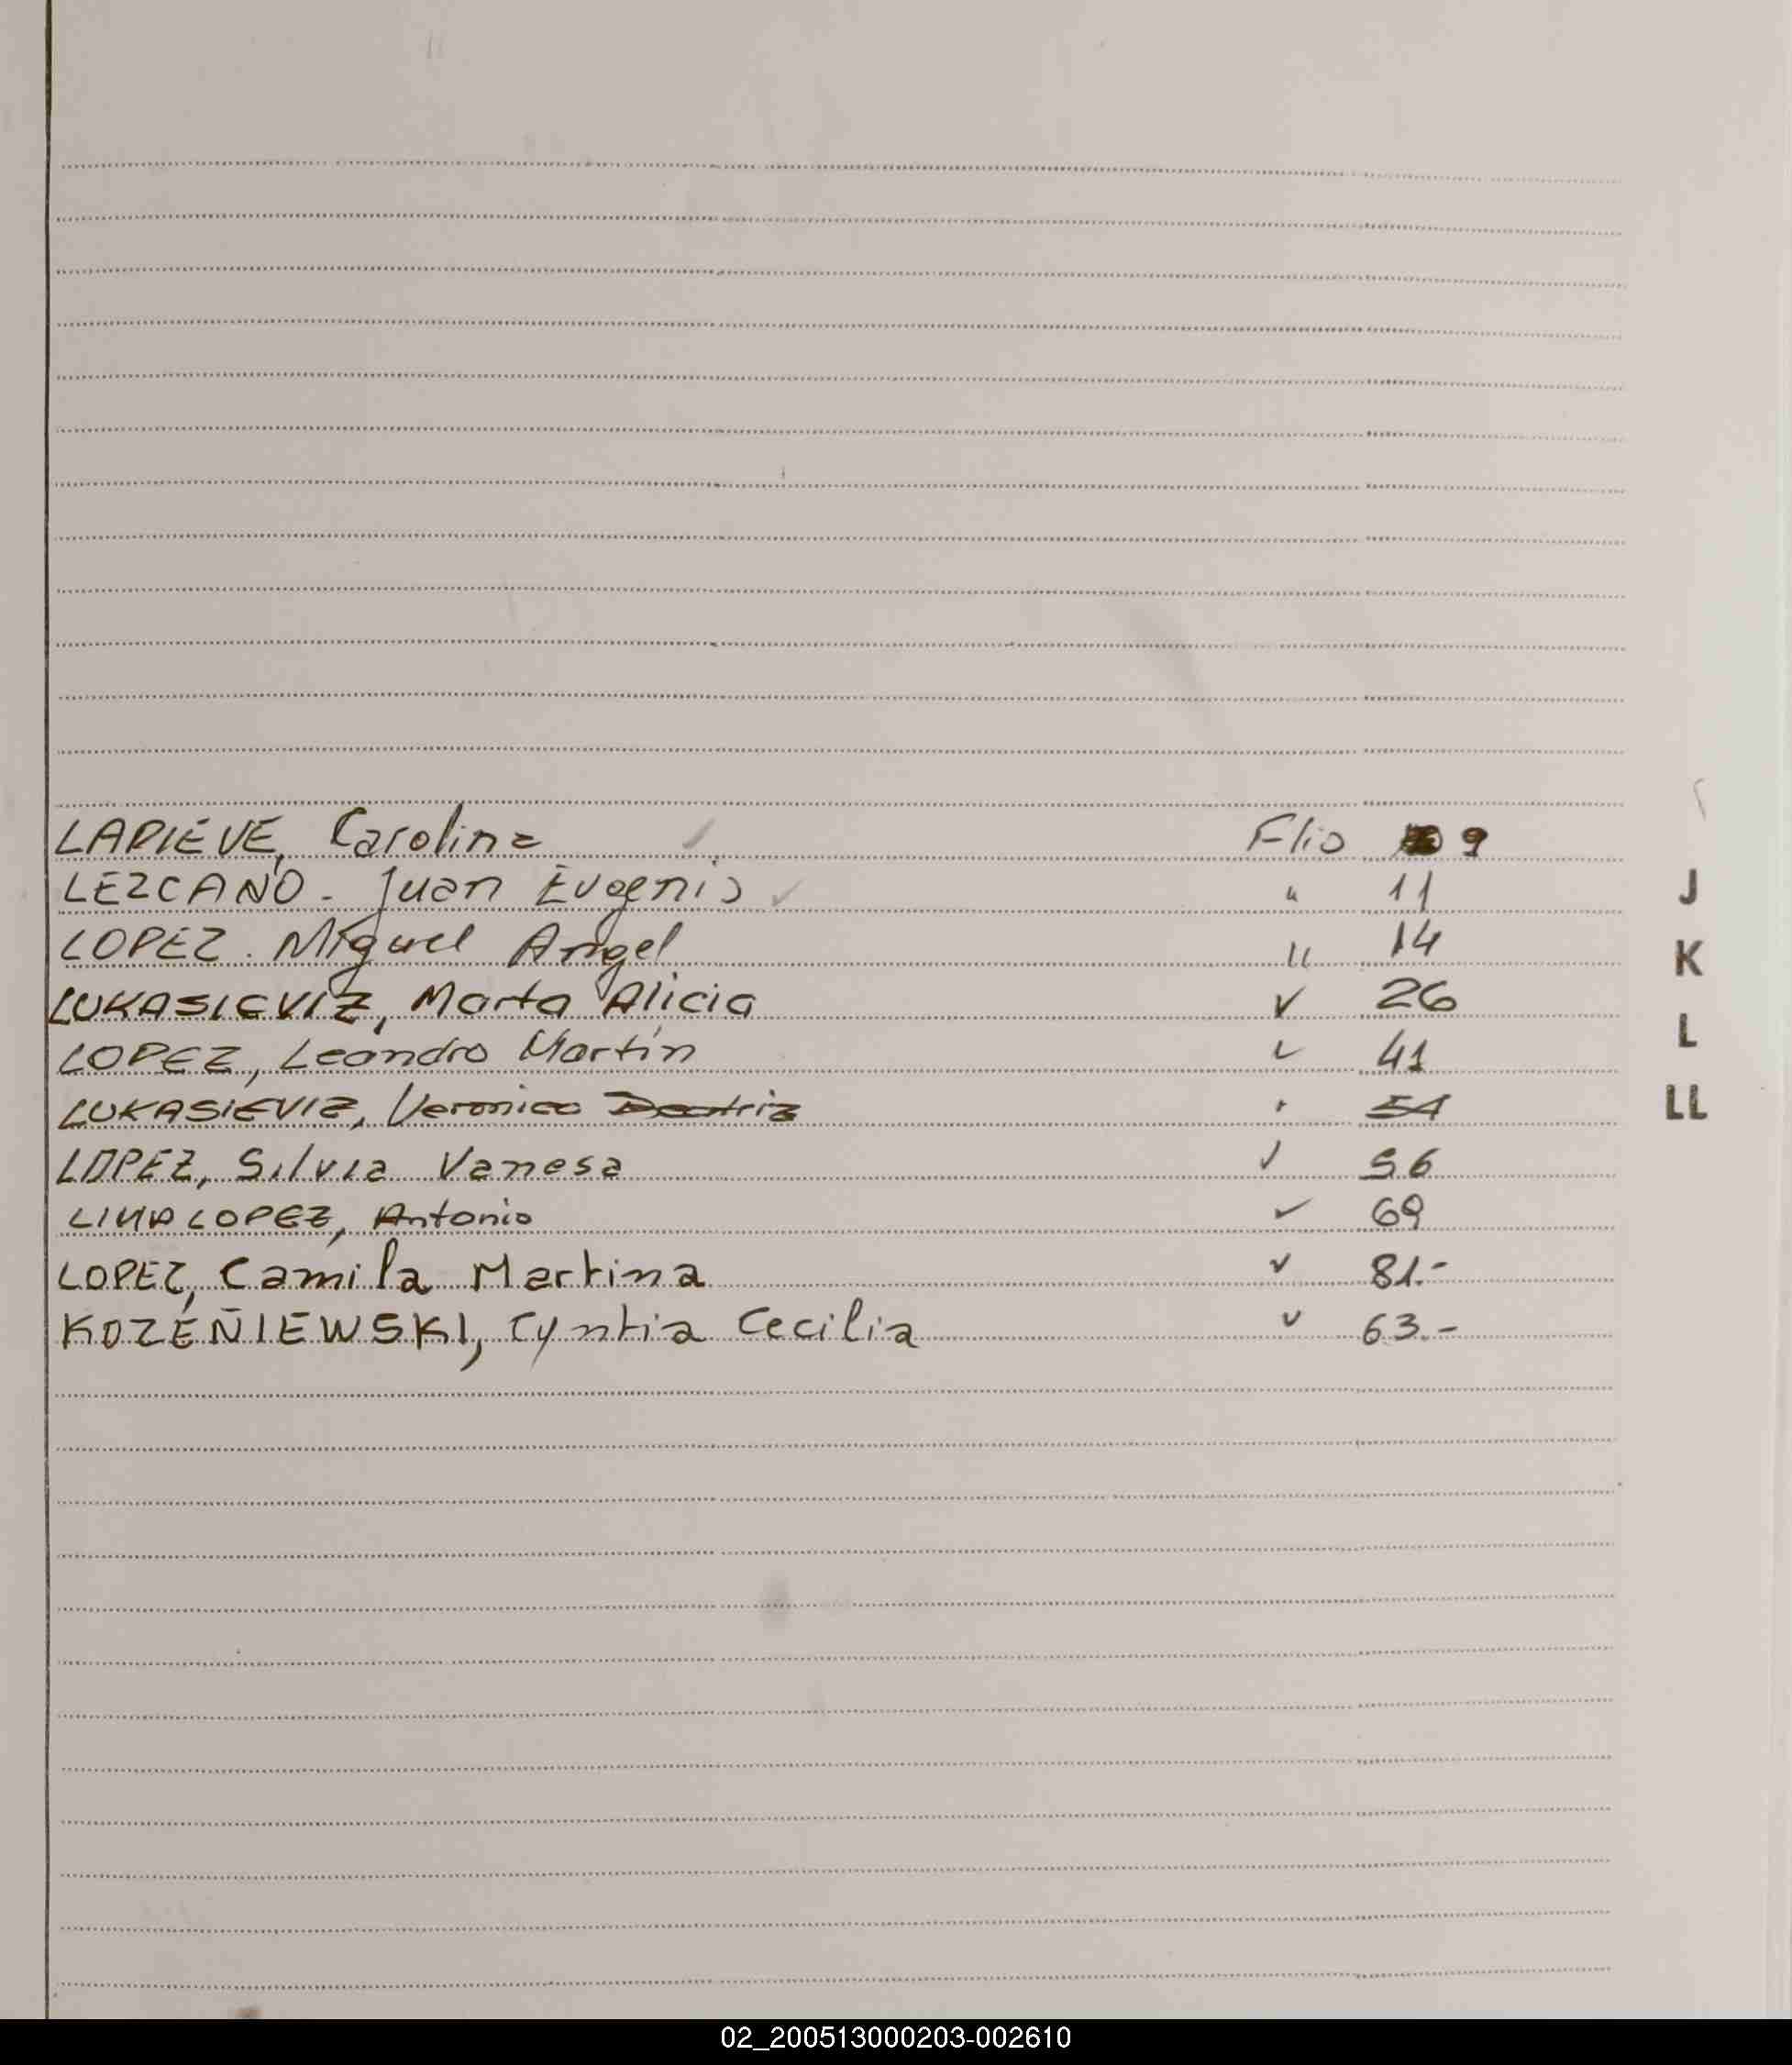 LAPIEVE, Carolina Flio 9
LEZCANO - Juan Eugenio " 11
J
LOPEZ. Miguel Angel " 14
K
LUKASIEVIZ, Marta Alicia 26
LOPEZ, Leandro Martín 41
L
LUKASIEVIZ, Veronica Beatriz 54
LL
LOPEZ, Silvia Vanesa 56
LIMA LOPEZ, Antonio 69
LOPEZ, Camila Martina 81.-
KOZEÑIEWSKI, Cyntia Cecilia 63.-
02_200513000203-002610